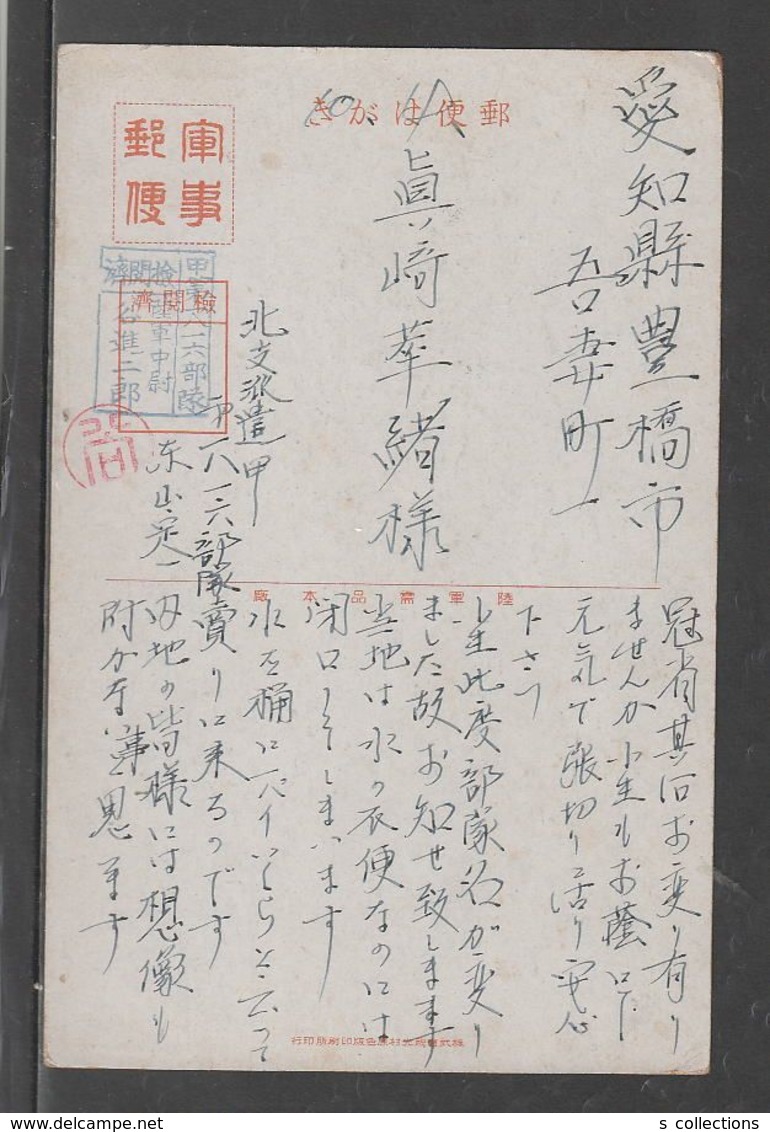 郵便はがき
軍事
郵便
愛知縣豊橋市
吾妻町一
眞崎萃緒様
検閲済
検閲濟
甲第一八一六部隊
陸軍中尉
谷進三郎
北支派遣甲
一八一六部隊
陸軍需品本廠
冠省其后お変り有り
ませんか小生もお蔭に
元気で張切り居り安心
下さい
小生此度部隊名が変り
ました故お知せ致します
当地は水の不便なのには
閉口してしまいます
水を桶に一パイいくらと云って
賣りに来るのです
内地の皆様には想像も
附かない事と思ます
s collections